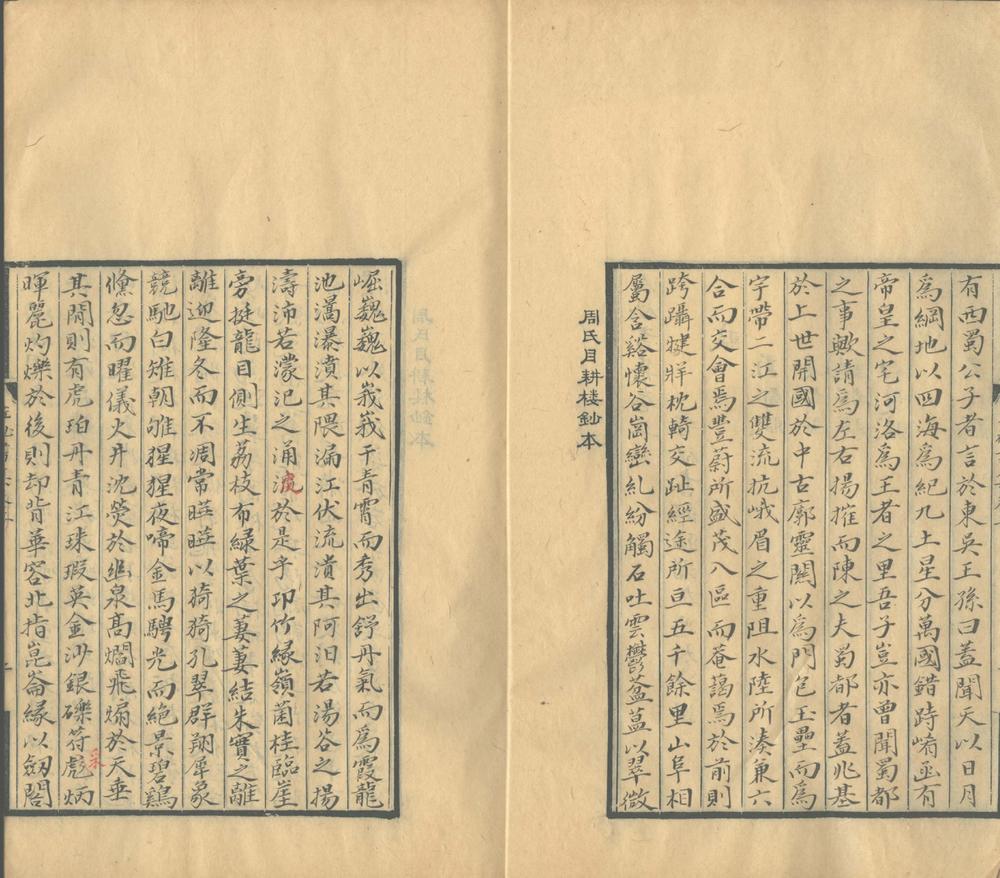 有西蜀公子者言於東吳王孫曰蓋聞天以日月
爲綱地以四海爲紀九土星分萬國錯跱崤函有
帝皇之宅河洛爲王者之里吾子豈亦曾聞蜀都
之事歟請爲左右揚搉而陳之夫蜀都者蓋兆基
於上世開國於中古廓靈關以爲門包玉壘而爲
宇帶二江之雙流抗峨眉之重阻水陸所湊兼六
合而交會焉豐蔚所盛茂八區而菴藹焉於前則
跨躡犍牂枕輢交趾經途所亘五千餘里山阜相
屬含谿懷谷崗巒糺紛觸石吐雲鬱葢蒀以翠微
周氏目耕楼鈔本
崛巍巍以峩峩干青霄而秀出舒丹氣而爲霞龍
池㶁瀑濆其隈漏江伏流潰其阿汨若湯谷之揚
濤沛若濛汜之涌波於是乎卭竹緣嶺菌桂臨崖
旁挺龍目側生荔枝布綠葉之萋萋結朱實之離
離迎隆冬而不凋常曄曄以猗猗孔翠群翔犀象
競馳白雉朝雊猩猩夜啼金馬騁光而絶景碧鷄
儵忽而曜儀火井沈熒於幽泉髙爓飛煽於天垂
其間則有虎珀丹青江珠瑕英金沙銀礫符彪炳
采
暉麗灼爍於後則却背華容北指崑崙緣以劔閣